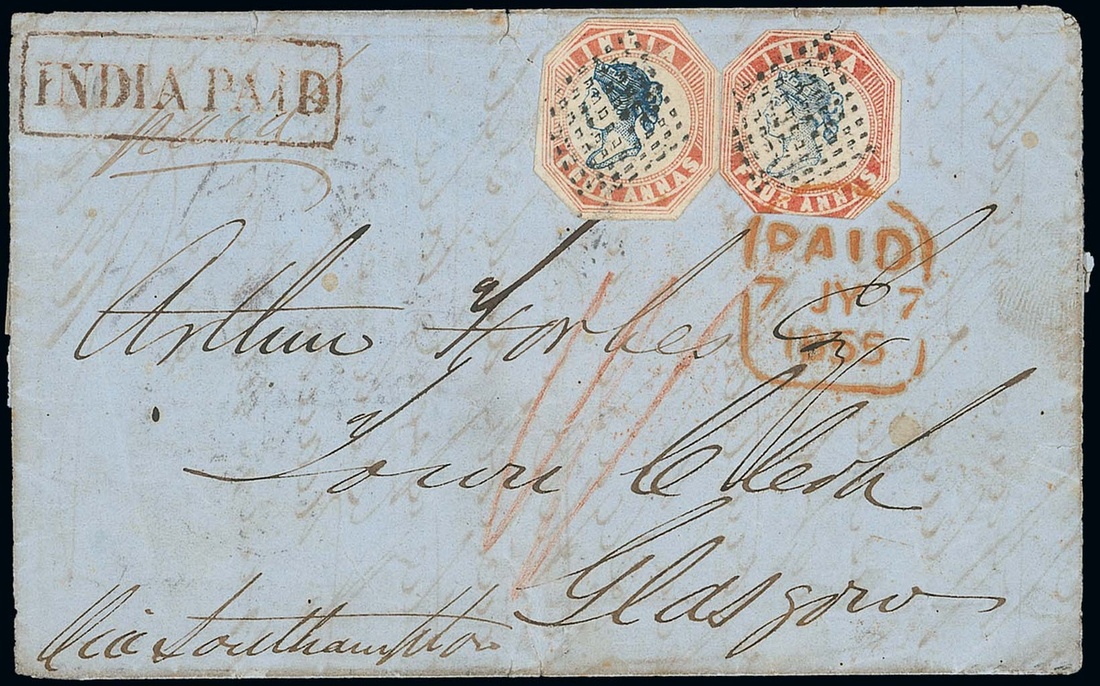 INDIA PAID
paid
INDIA
FOUR ANNAS
INDIA
FOUR ANNAS
PAID
7 JY 7
1855
Arthur Forbes Esq
Town Clerk
Glasgow
Via Southampton